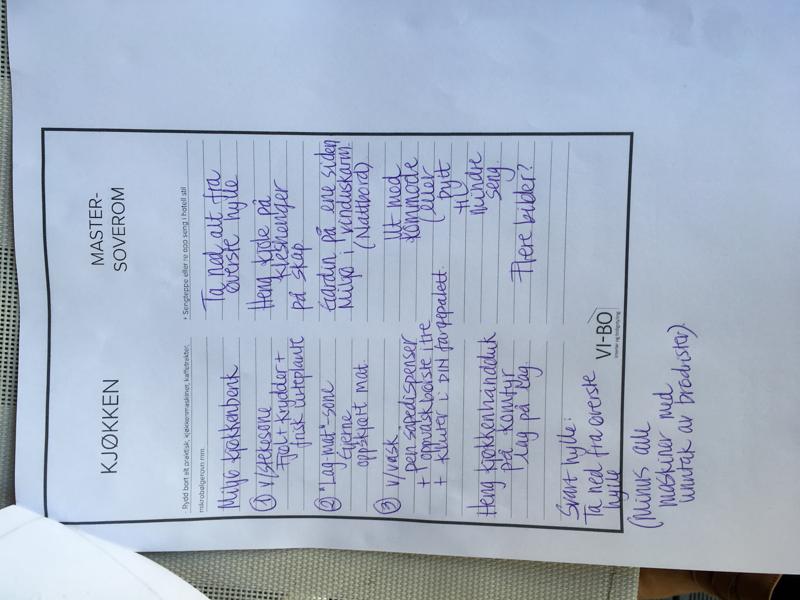 KJØKKEN
- Rydd bort alt praktisk, kjøkkenmaskiner, kaffetrakter,
mikrobølgeovn mm.
Miljø kjøkkenbenk
① v/stekesone
Fjøl + krydder +
frisk urteplante
② "Lag-mat"-sone
Gjerne
oppskjørt mat.
③ v/vask
pen såpedispenser
+ oppvaskbørste i tre
+ kluter i DIN fargepalett.
Heng kjøkkenhåndduk
på komfyr
lag på lag.
Svart hylle:
Ta ned fra øverste
hylle
(Minus alle
maskiner med
unntak av brødrister)
MASTER-
SOVEROM
+ Sengteppe eller re opp seng i hotell stil
Ta ned alt fra
øverste hylle
Heng kjole på
kleshenger
på skap
Gardin på ene siden
Miljø i vinduskarm.
(Nattbord)
Ut med
kommode
(eller
bytt
til
mindre
seng.
Flere bilder?
VI-BO